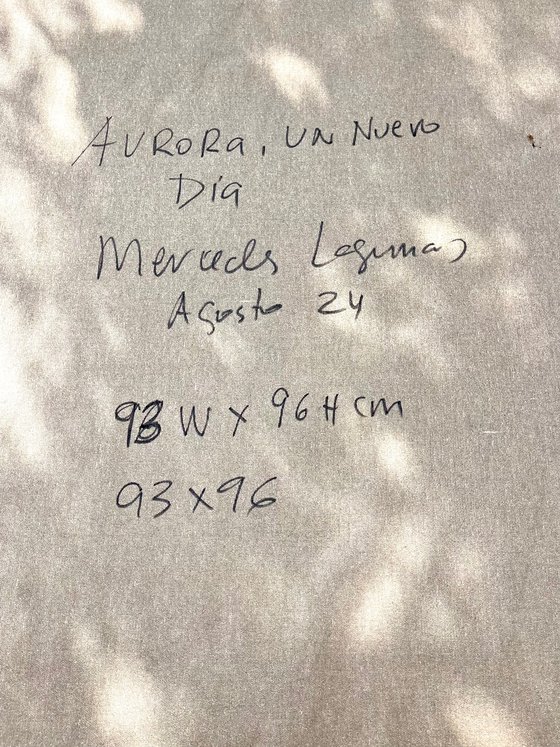 AURORA, UN NUEVO
Día
Mercedes Lagunas
Agosto 24
93 W X 96 H cm
93 x 96